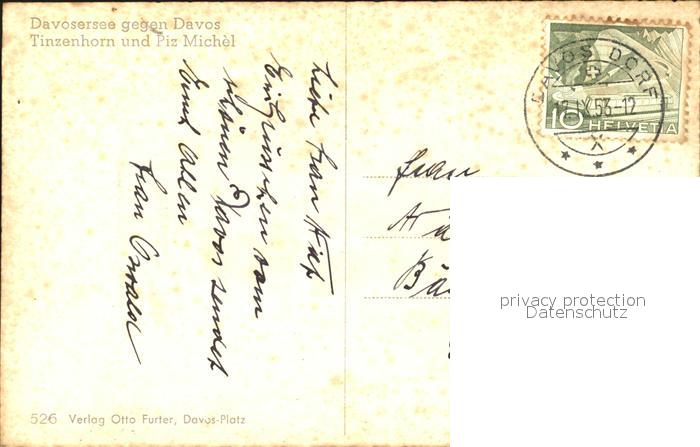 Davosersee gegen Davos
Tinzenhorn und Piz Michèl
Liebe Frau
Ein Grüsschen vom
schönen Davos sendet
Ihnen Allen
Frau Oswald
DAVOS DORF
12.IX.53-12
10 HELVETIA
Frau
privacy protection
Datenschutz
526 Verlag Otto Furter, Davos-Platz